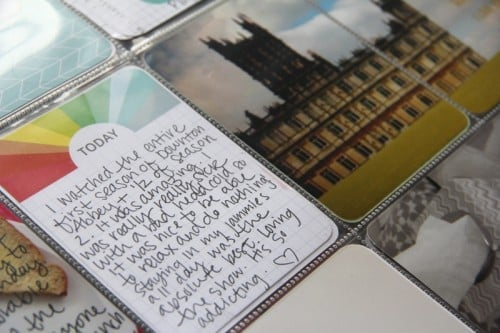 TODAY
I watched the entire
first season of Downton
& about 1/2 of season
2. It was amazing. I
was really really sick
with a bad head cold so
it was nice to be able
to relax and do nothing
Staying in my jammies
all day was the
absolute best. Loving
the show. It's so
addicting. ♡
to
able
everyone